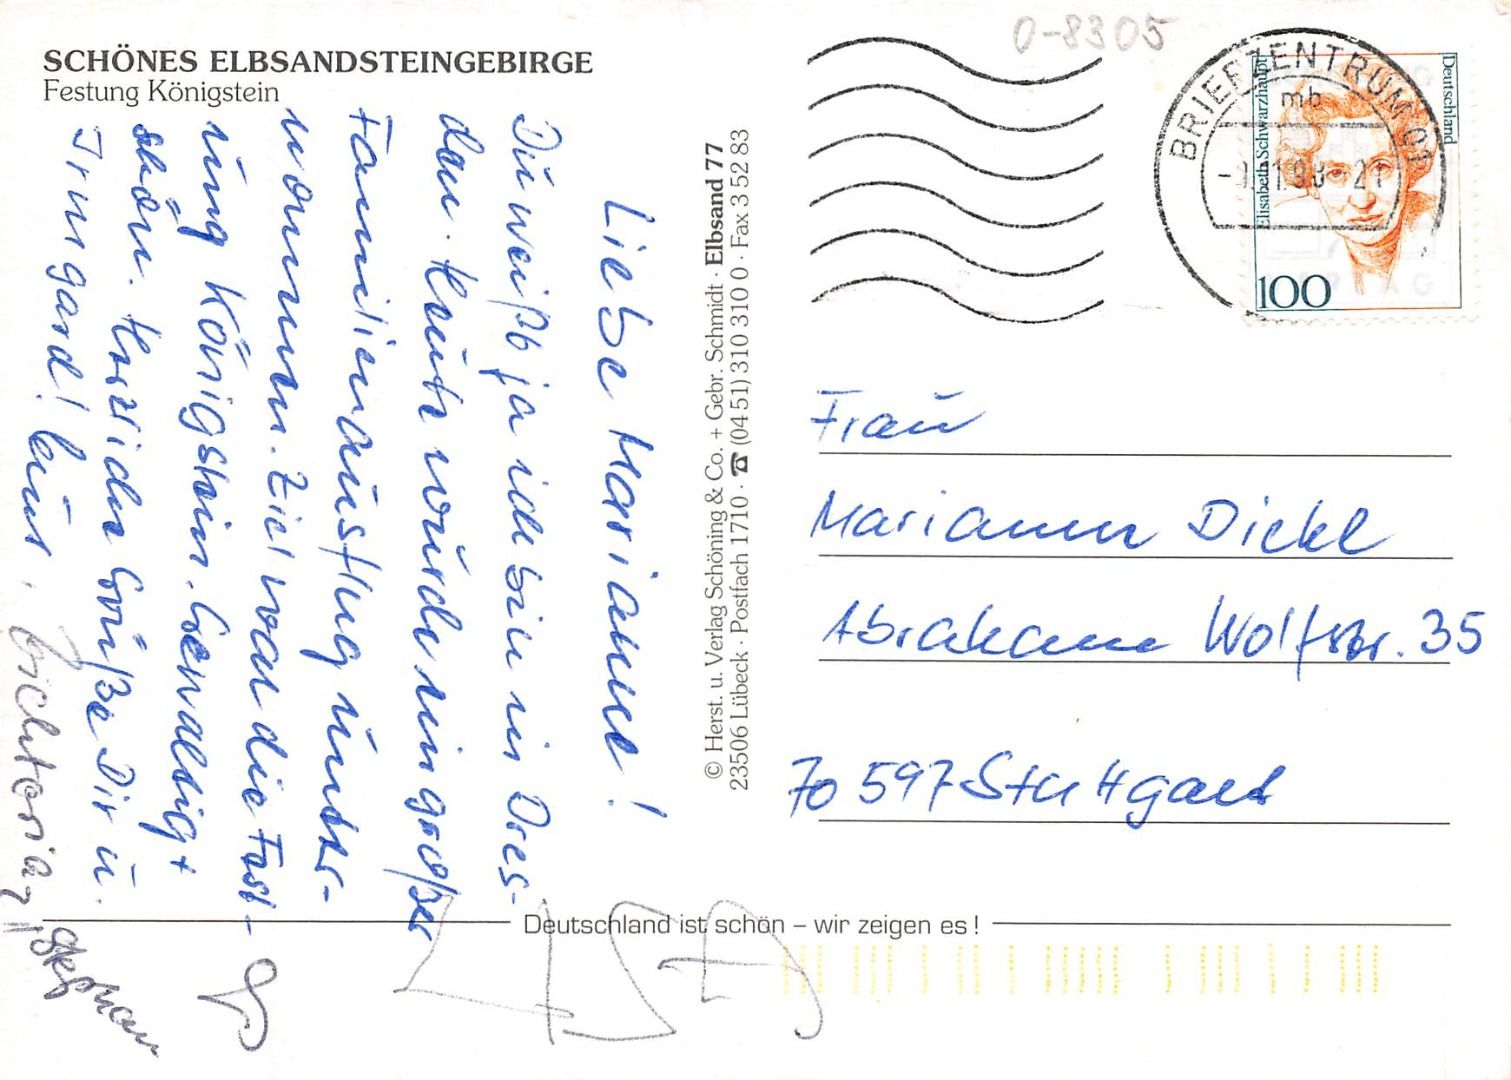 SCHÖNES ELBSANDSTEINGEBIRGE
Festung Königstein
0-8305
BRIEFZENTRUM 0
mb
Deutschland
Elisabeth Schwarzhaupt
100
Liebe Marianne!
Du weißt ja ich bin in Dres-
den. Heute wurde ein großer
Familienausflug unter-
nommen. Ziel war die Fest-
ung Königstein. Gewaltig +
schön. Herzliche Grüße Dir u.
Irmgard!
Stephan
© Herst. u. Verlag Schöning & Co. + Gebr. Schmidt · Elbsand 77
23506 Lübeck · Postfach 1710 · ☎ (04 51) 310 310 0 · Fax 3 52 83
Frau
Marianne Dickl
Abraham Wolfstr. 35
70 597 Stuttgart
Deutschland ist schön – wir zeigen es !